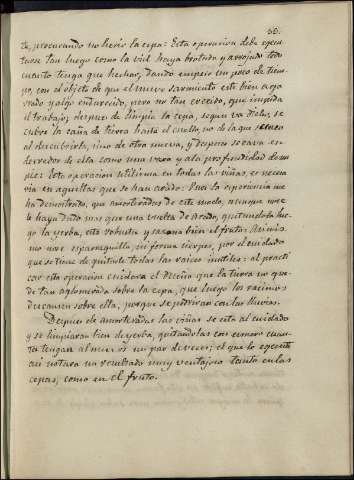 55.
te, procurando no herir la cepa: Esta operacion debe ejecu-
tarse tan luego como la vid haya brotado y arrojado todo
cuanto tenga que hechar, dando empero un poco de tiem-
po, con el objeto de que el nuevo sarmiento este bien arro-
yado y algo endurecido, pero no tan cocido, que impida
el trabajo; despues de limpia la cepa, segun va dicho, se
cubre la caña de tierra hasta el cuello, no de la que
al descubrirla, sino de otra nueva, y despues se cava en-
derredor de ella como una vara y a la profundidad de un
pie: Esta operacion utilisima en todas las viñas, es necesa-
ria en aquellas que se han arado: Pues la esperiencia me
ha demostrado, que amorteradas de este modo, aunque no se
le haya dado mas que una vuelta de arado, quitandola lue-
go la yerba, esta robusta y sazona bien el fruto: Asimis-
mo no se esparraguilla, ni forma cierpes, por el cuidado
que se tiene de quitarle todas las raices inutiles: al practi-
car esta operacion cuidara el Dueño que la tierra no que-
de tan aglomerada sobre la cepa, que luego los racimos
descansen sobre ella, porque se pudriran con las lluvias.
Despues de amorteradas las viñas se esta al cuidado
y se limpiaran bien de yerba, quitandolas con esmero cuan-
ta tengan al menos un par de veces; el que lo egecute
asi notara un resultado muy ventajoso tanto en las
cepas, como en el fruto.